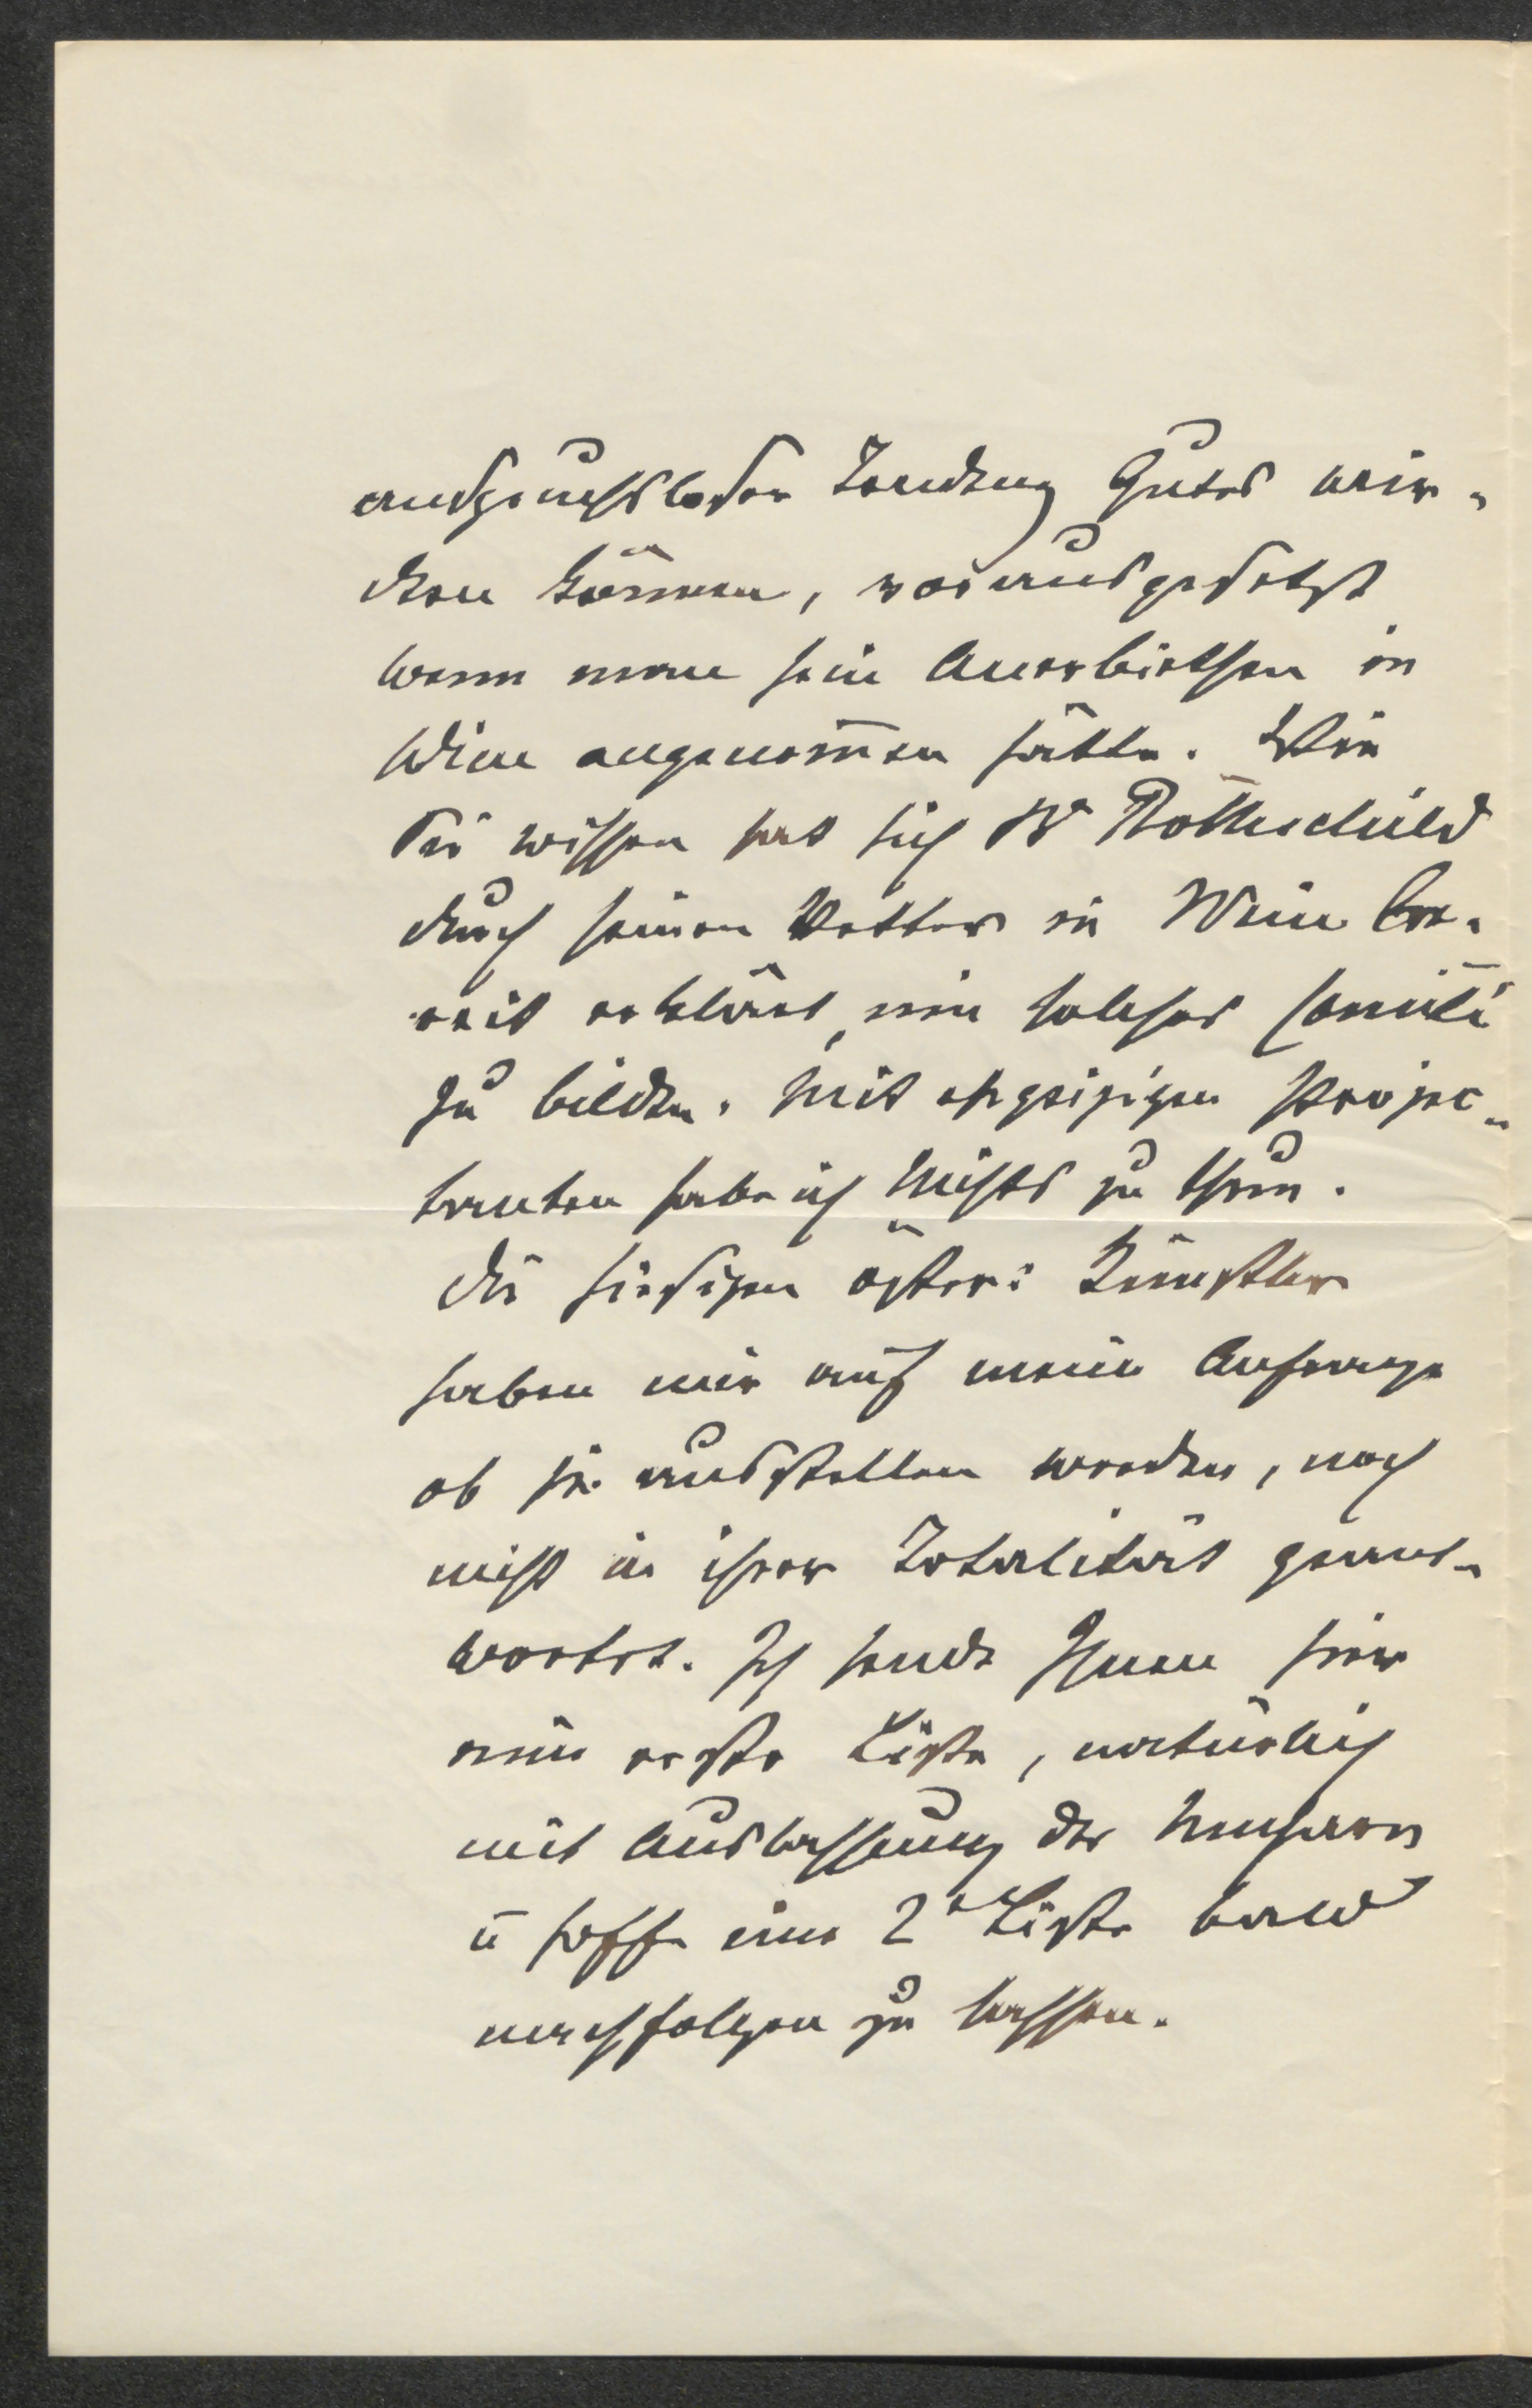 anspruchsloser Tendenz Gutes wir-
ken können, vorausgesetzt
wenn man sein Anerbiethen in
Wien angenomen hätte. Wie
Sie wissen hat sich Br Rothschild
durch seinen Vetter in Wien be-
reit erklärt, ein solches Comité
zu bilden. Mit ehrgeizigen Projec-
tanten habe ich Nichts zu thun.
Die hiesigen öster: Künstler
haben mir auf meine Anfrage
ob sie ausstellen werden, noch
nicht in ihrer Totalität geant-
wortet. Ich sende Ihnen hier
eine erste Liste, natürlich
mit Auslassung der Ungarn
u hoffe eine 2te Liste bald
nachfolgen zu lassen.